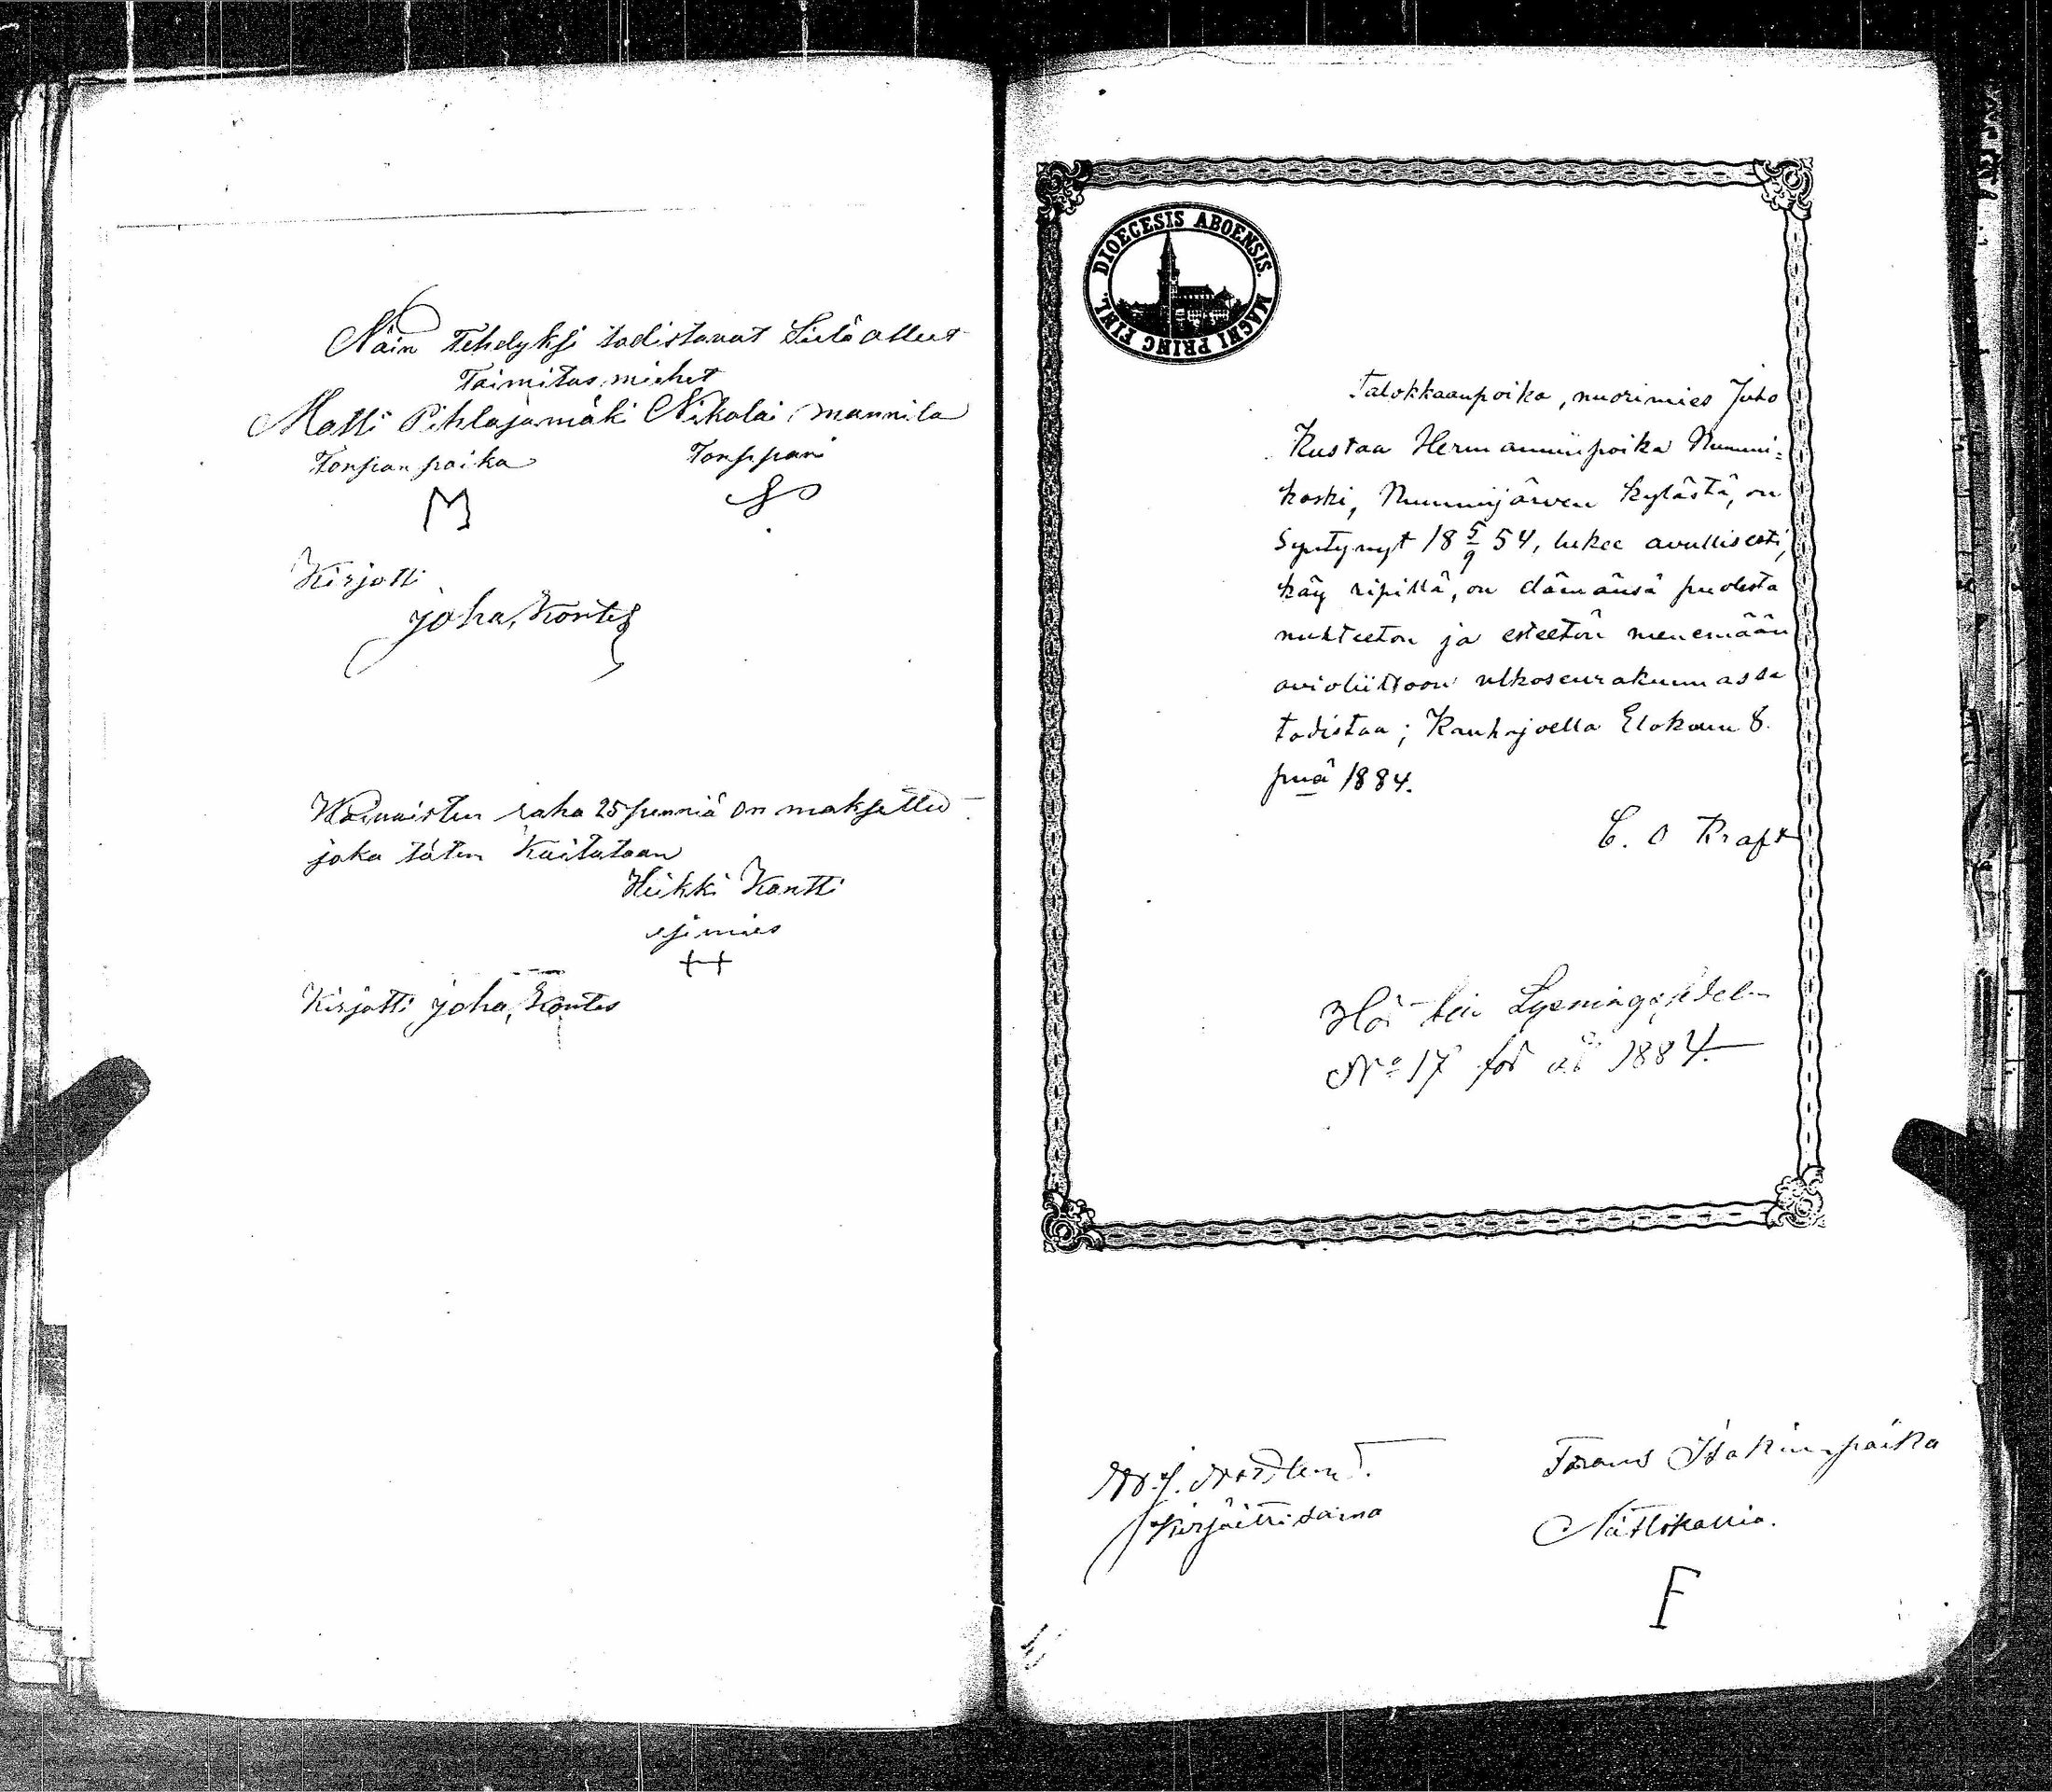 Näin Tehdyksi todistavat Siitä olleet
Toimitus miehet
Matti Pihlajamäki Nikolai Mannila
Torpan poika Torppari
M
Kirjotti
joha, Kontes
Waivaisten raha 25 penniä on maksettu
joka täten Kuitataan
Heikki Kontti
esimies
Kirjotti joha, Kontes
DIOECESIS ABOENSIS. MAGNI PRINC FINL.
Talokkaanpoika, nuorimies Juho
Kustaa Hermanninpoika Nummi=
koski, Nummijärven kylästä, on
Syntynyt 18 5/9 54, lukee avullisesti,
käy ripillä, on elämänsä puolesta
nuhteeton ja esteetön menemään
avioliittoon ulkoseurakunnassa
todistaa; Kauhajoella Elokuun 8.
pnä 1884.
C. O Kraft
Hör till Lysningssedeln
No 17 för år 1884.
Kirjoitti
Frans Isakinpoika
Nättikallio.
F